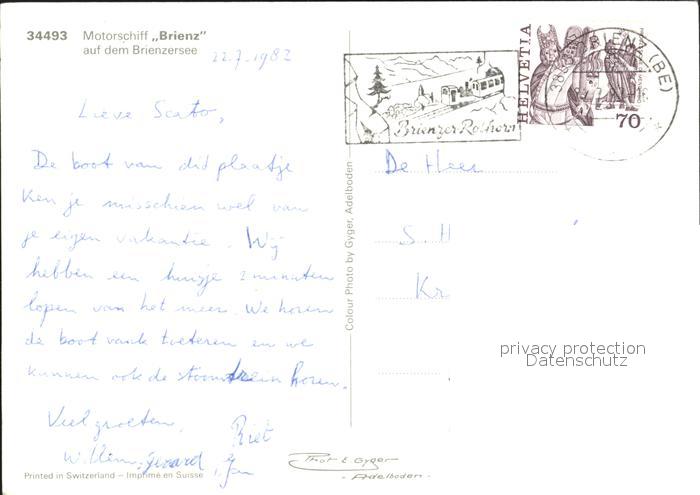 34493 Motorschiff „Brienz"
auf dem Brienzersee
22.7.1982
Lieve Scato,
De boot van did plaatje
Ken je misschien wel van
je eigen vakantie. Wij
hebben een huisje 2 minuten
lopen van het meer. We horen
de boot vaak toeteren en we
kunnen ook de stoomtrein horen.
Veel groeten,
Riet
Willem, Gerard, Jan
Printed in Switzerland – Imprimé en Suisse
Colour Photo by Gyger, Adelboden
Brienzer Rothorn
HELVETIA
70
BRIENZ (BE)
De Heer
S. H
Kr
privacy protection
Datenschutz
Phot E Gyger
- Adelboden -